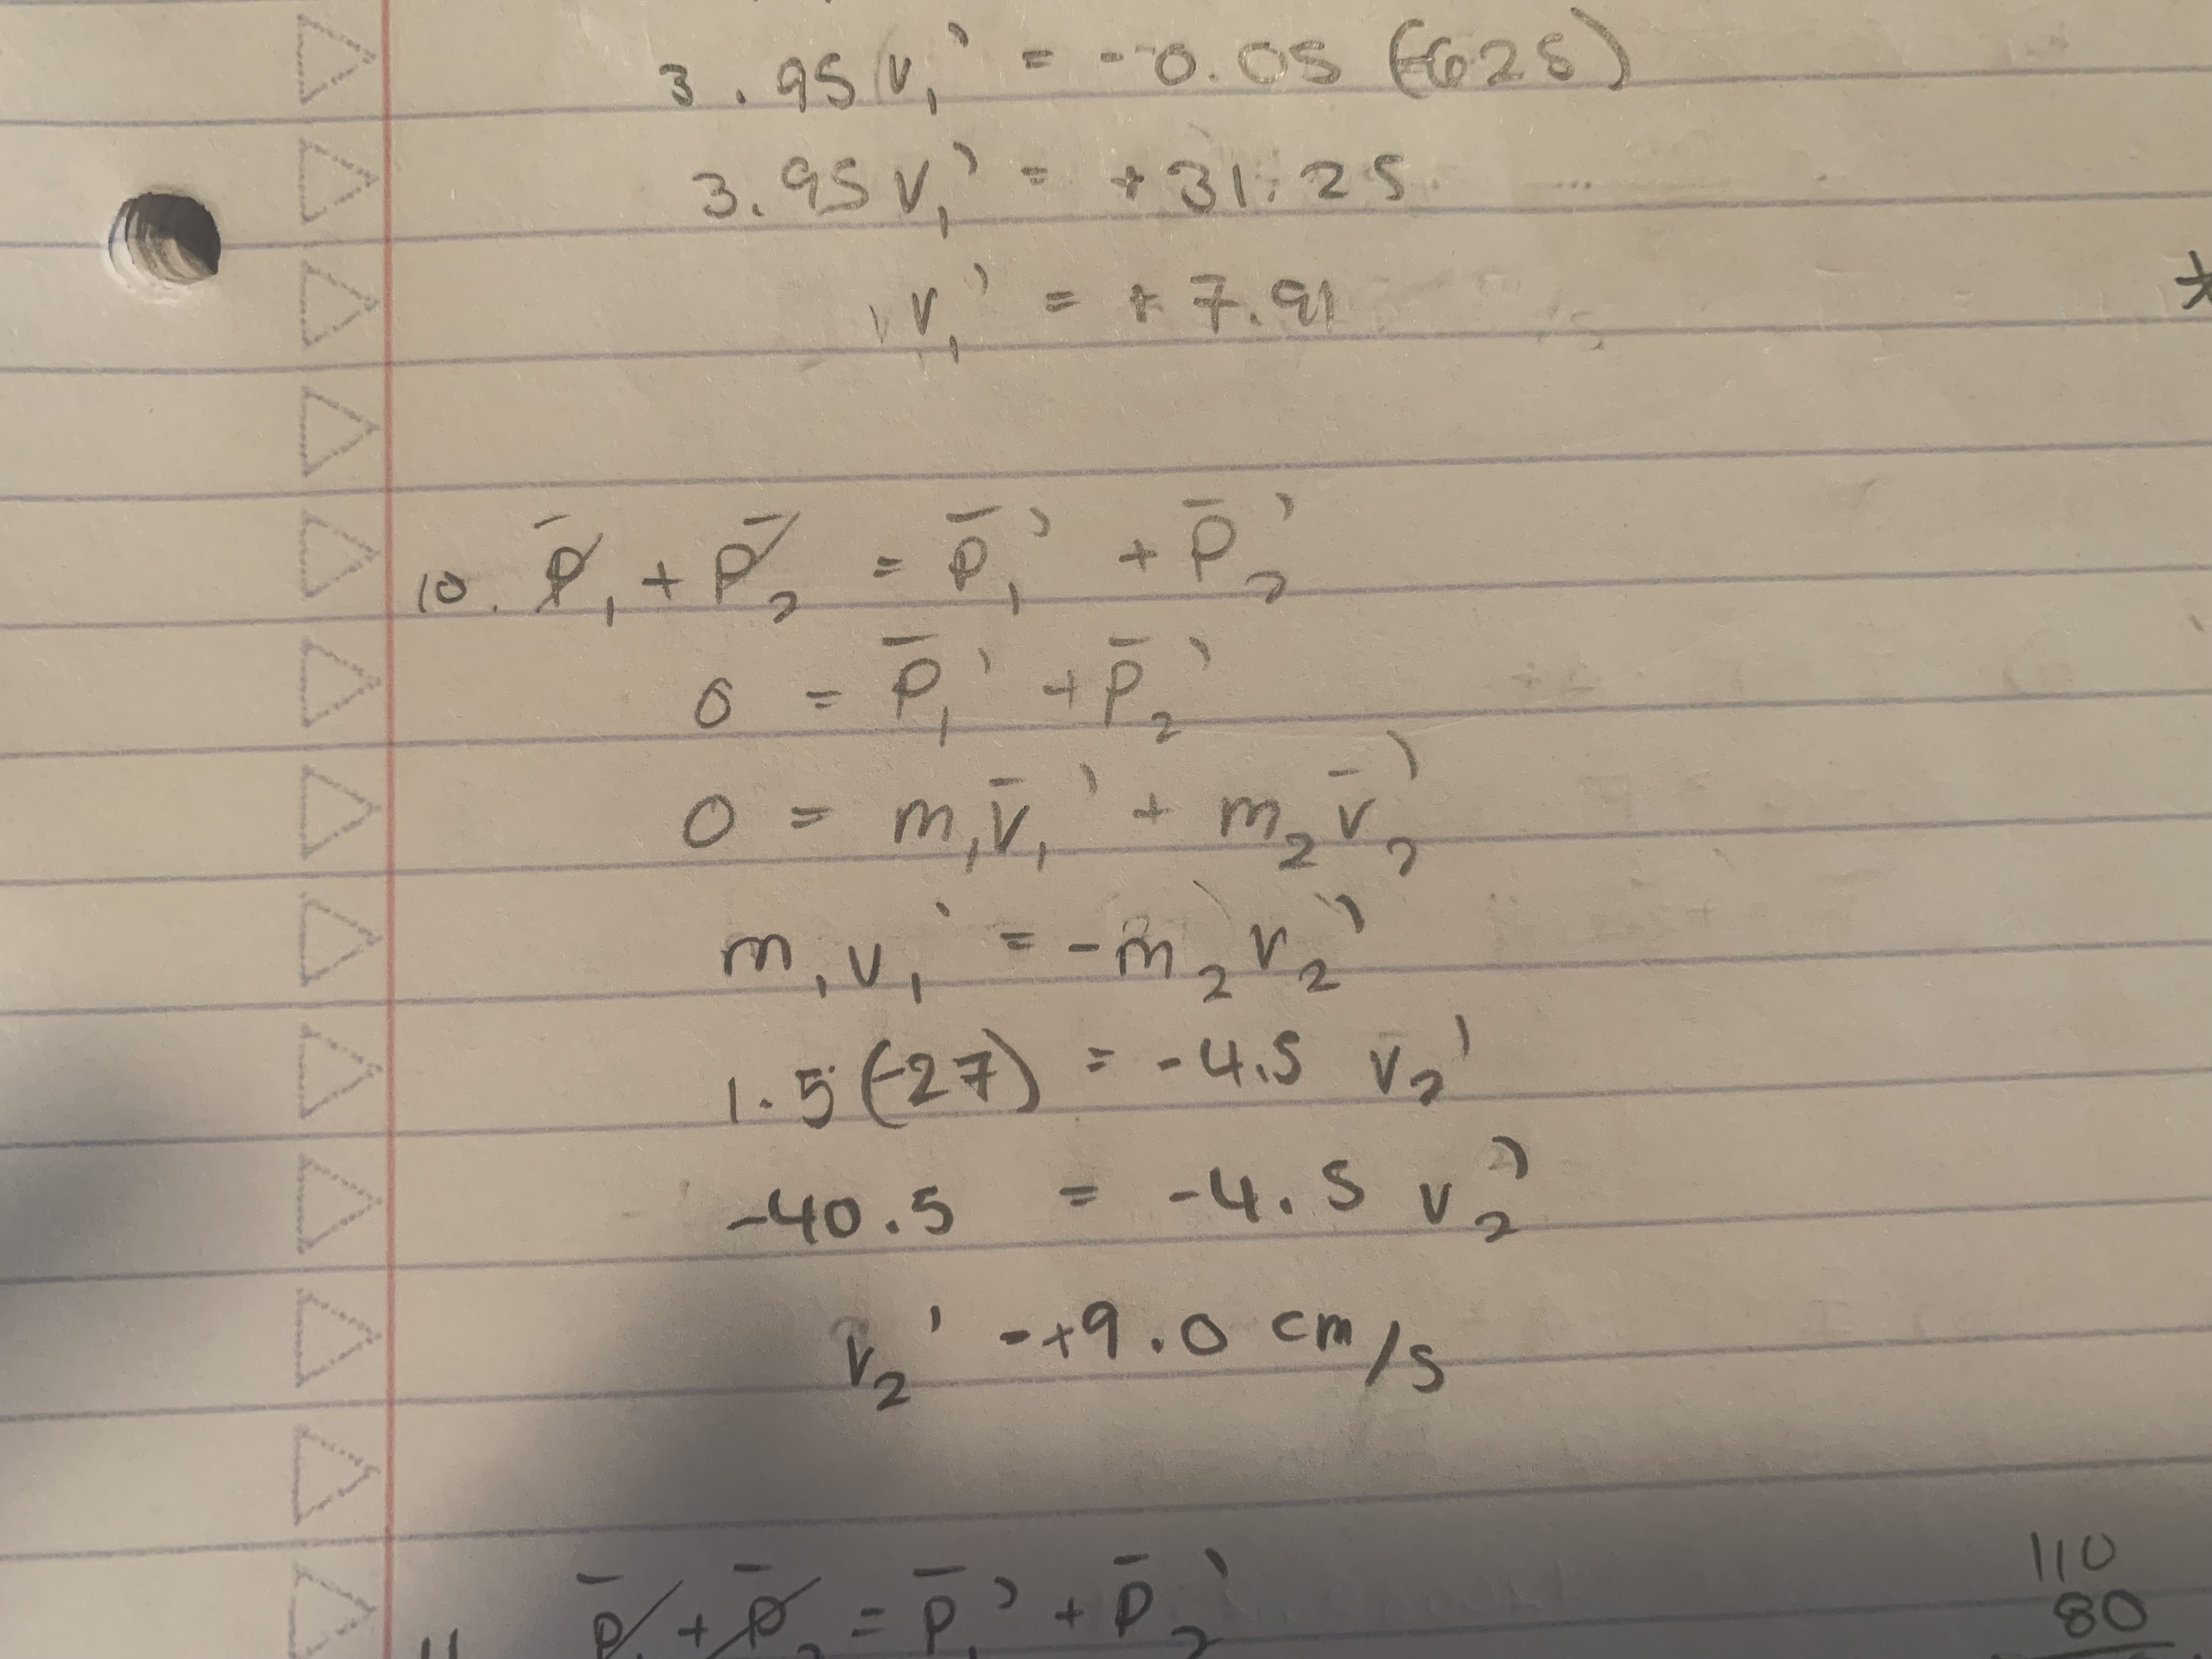 3.95 v₁' = -0.05 (-625)
3.95 v₁' = +31.25
v₁' = +7.91
*
10. p̄₁ + p̄₂ = p̄₁' + p̄₂'
0 = p̄₁' + p̄₂'
0 = m₁v̄₁' + m₂v̄₂'
m₁v₁' = -m₂v₂'
1.5(-27) = -4.5 v₂'
-40.5 = -4.5 v₂'
v₂' = +9.0 cm/s
11 p̄₁ + p̄₂ = p̄₁' + p̄₂'
110
80